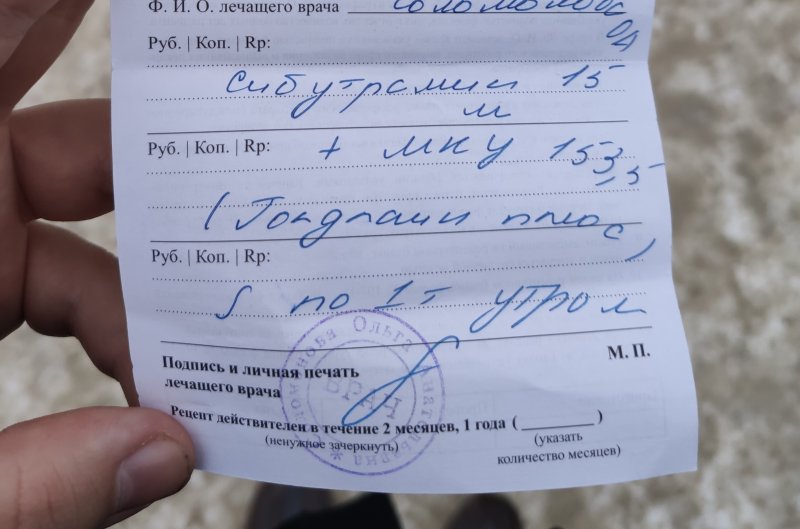 Ф. И. О. лечащего врача Соломонова
ОА
Руб. | Коп. | Rp:
Сибутрамин 15
м
Руб. | Коп. | Rp: + МКЦ 153,5
(Голдлайн плюс)
Руб. | Коп. | Rp:
S по 1 т утром
М. П.
Подпись и личная печать
лечащего врача
Соломонова Ольга Анатольевна *
ВРАЧ
Рецепт действителен в течение 2 месяцев, 1 года (________)
(ненужное зачеркнуть)
(указать
количество месяцев)